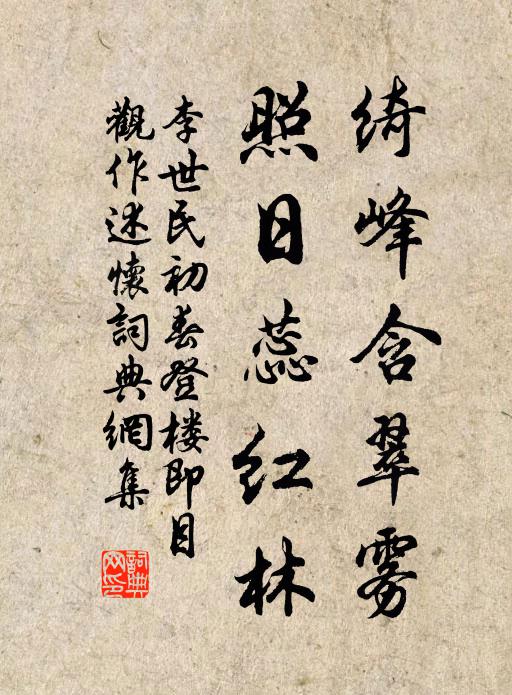 绮峰含翠雾
照日蕊红林
李世民初春登楼即目
觀作述懷詞典網集
詞典
网印